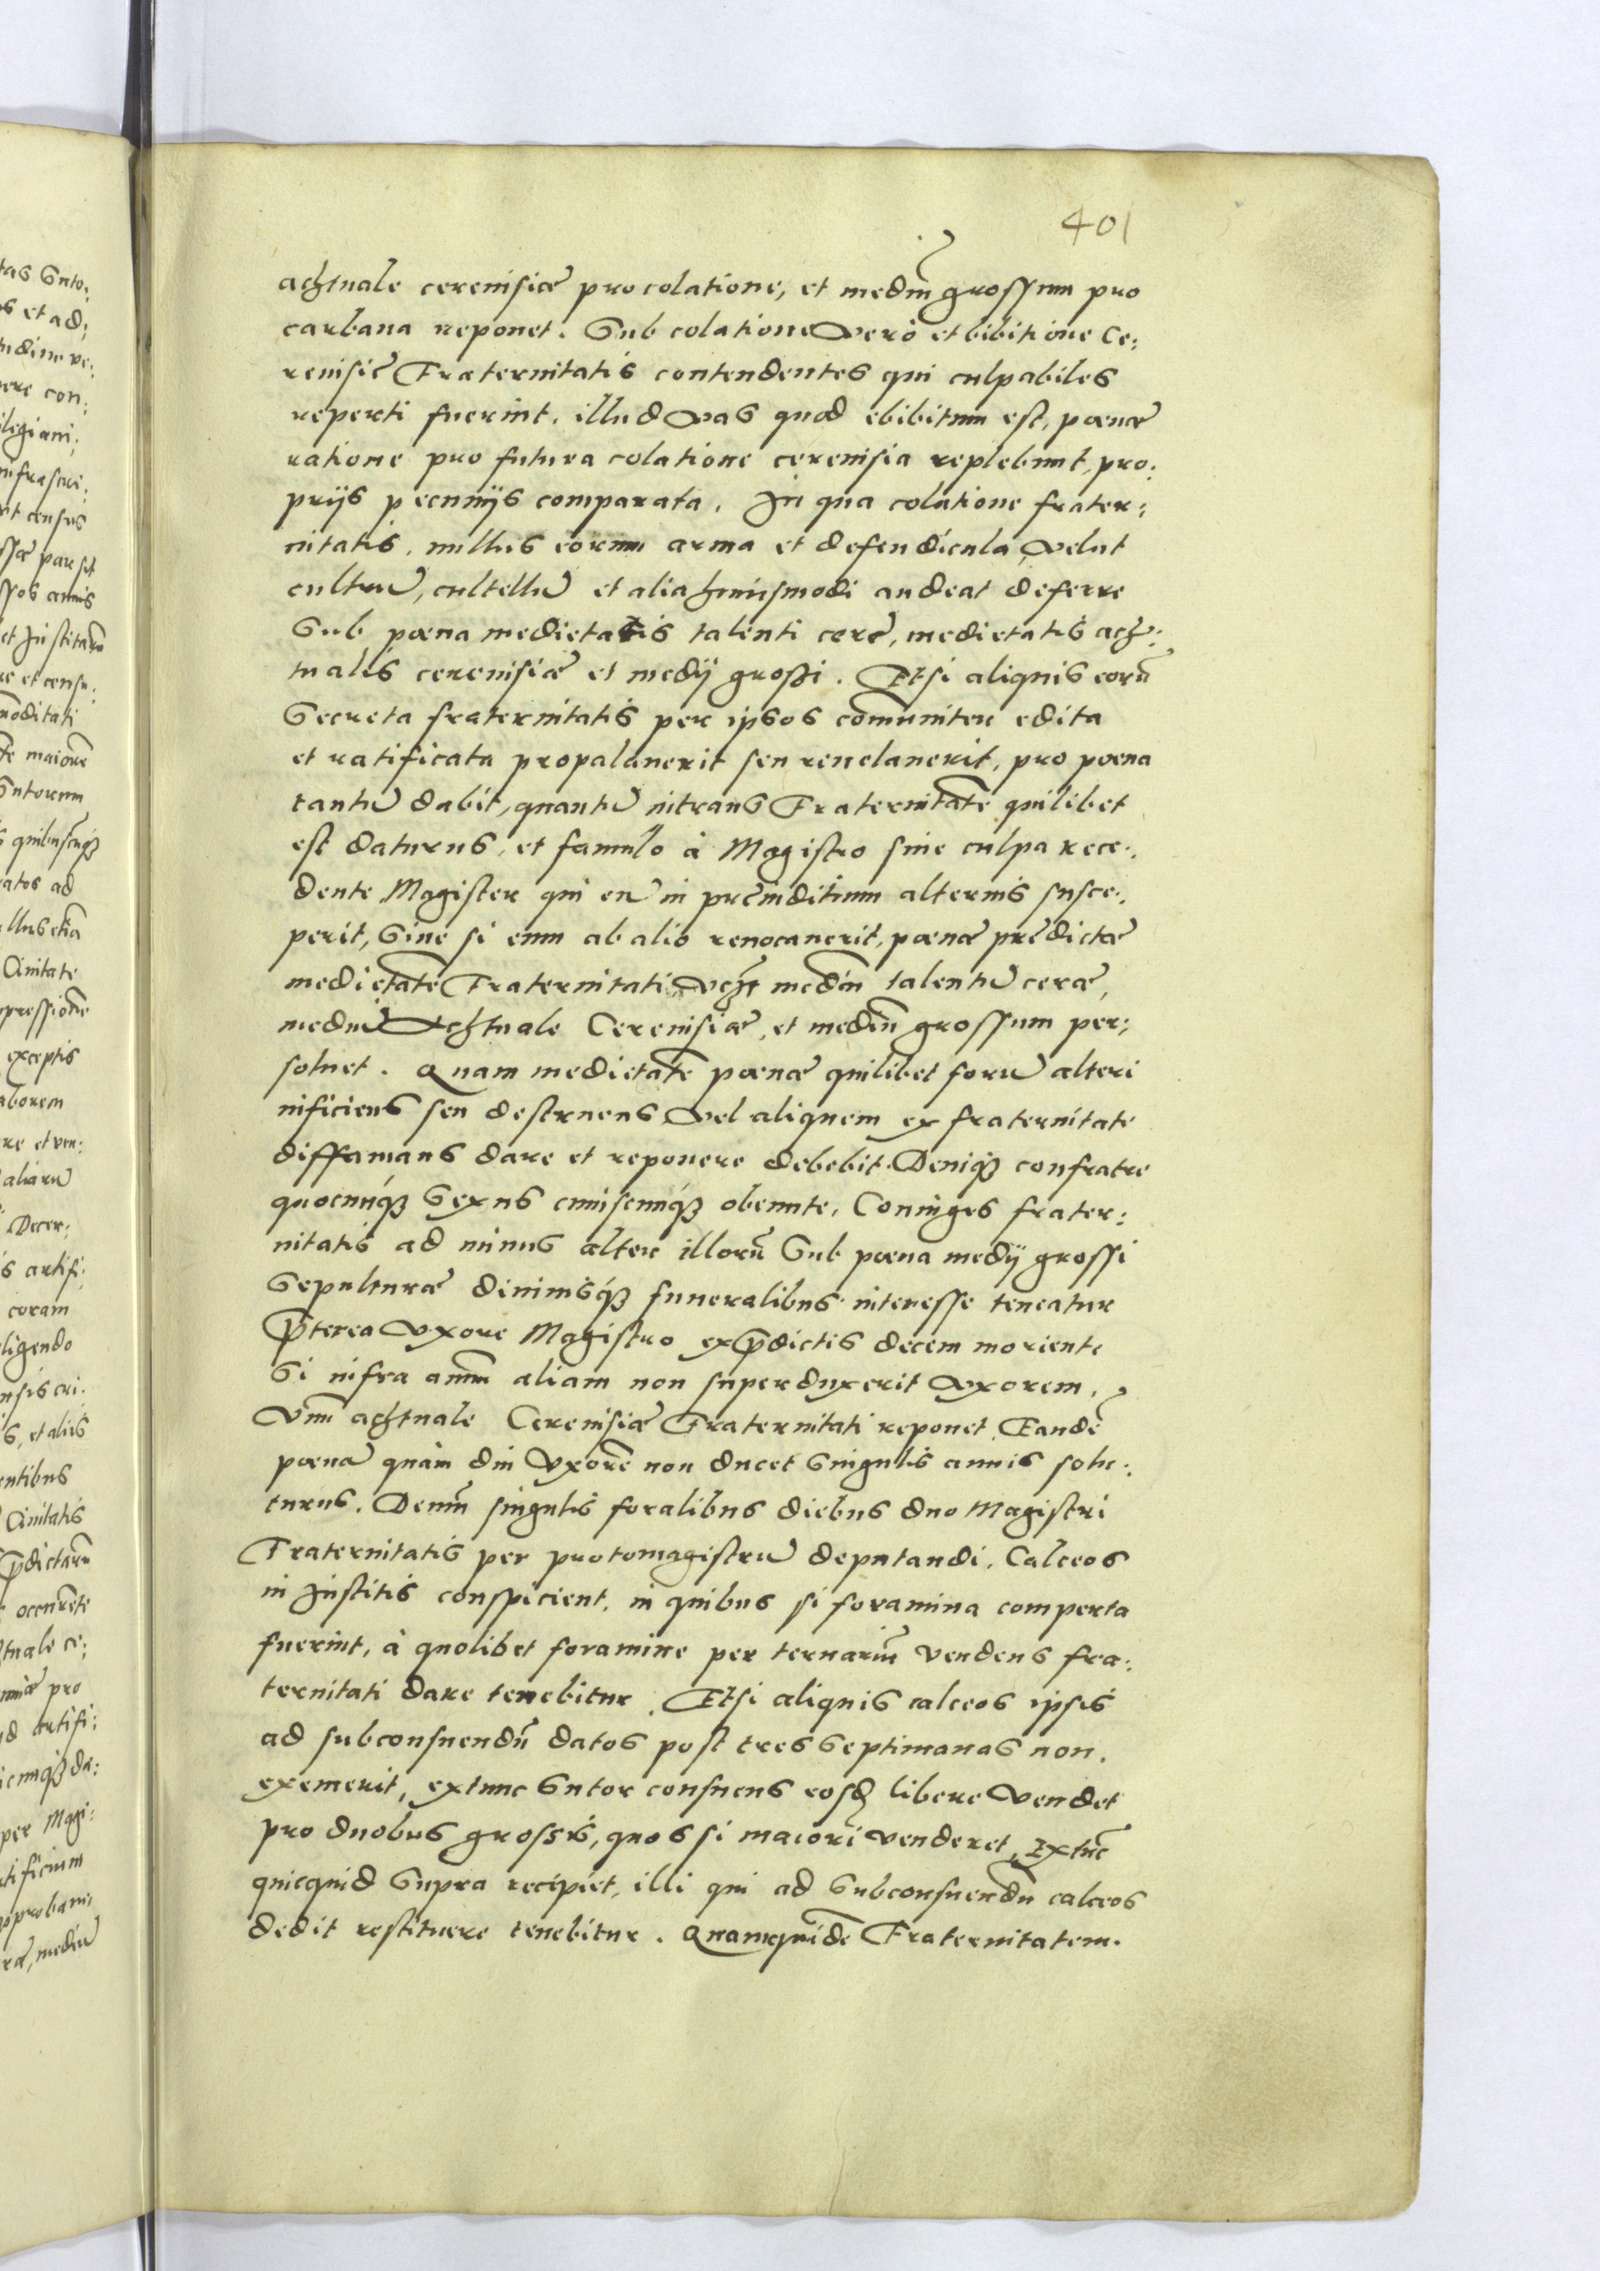 401
achtuale cerevisiæ pro colatione, et mediū grossum pro
carbana reponet. Sub colatione vero et bibitione Ce:
revisię Fraternitatis contendentes qui culpabiles
reperti fuerint, illud vas quod ebibitum est, pœnæ
ratione pro futura colatione cerevisia replebunt, pro:
prijs pecunijs comparata. In qua colatione frater:
nitatis, nullus eorum arma et defendicula velut
cultrū, cultellū et alia huiusmodi audeat deferre
Sub pœna medietatis talenti cerę, medietatis ach:
tualis cerevisiæ et medij grossi. Etsi aliquis eorū
Secreta fraternitatis per ipsos comūniter edita
et ratificata propalauerit seu reuelauerit, pro pœna
tantū dabit, quantū intrans Fraternitatē quilibet
est daturus, et famulo à Magistro sine culpa rece:
dente Magister qui eū in pręiuditium alterius susce:
perit, Siue si eum ab alio reuocauerit, pœnæ prędictæ
medietatē Fraternitati vcht mediū talentū ceræ,
mediū Achtuale Cerevisiæ, et mediū grossum per:
soluet. Quam medietatē pœnæ quilibet forū alteri
inficiens seu destruens vel aliquem ex fraternitate
diffamans dare et reponere debebit. Deniq3 confratre
quocunq3 Sexus cuiuscunq3 obeunte, Coniuges frater:
nitatis ad minus alter illorū Sub pœna medij grossi
Sepulturæ diuinisq3 funeralibus interesse teneatur
P̄terea vxore Magistro ex p̄dictis decem moriente
Si infra annū aliam non superduxerit vxorem,
Vnū achtuale Cerevisiæ Fraternitati reponet, Eandē
pœnā quàm diu vxorē non ducet Singulis annis solu:
turus. Demū singulis foralibus diebus duo Magistri
Fraternitatis per protomagistrū deputandi, Calceos
in Institis conspicient, in quibus si foramina comperta
fuerint, à quolibet foramine per ternariū vendens fra:
ternitati dare tenebitur. Etsi aliquis calceos ipsis
ad subconsuendū datos post tres septimanas non
exemerit, extunc Sutor consuens eosd libere vendet
pro duobus grossis, quos si maiori venderet, Extūc
quicquid Supra recipiet, illi qui ad Subconsuendū calceos
dedit restituere tenebitur. Quamquidē Fraternitatem